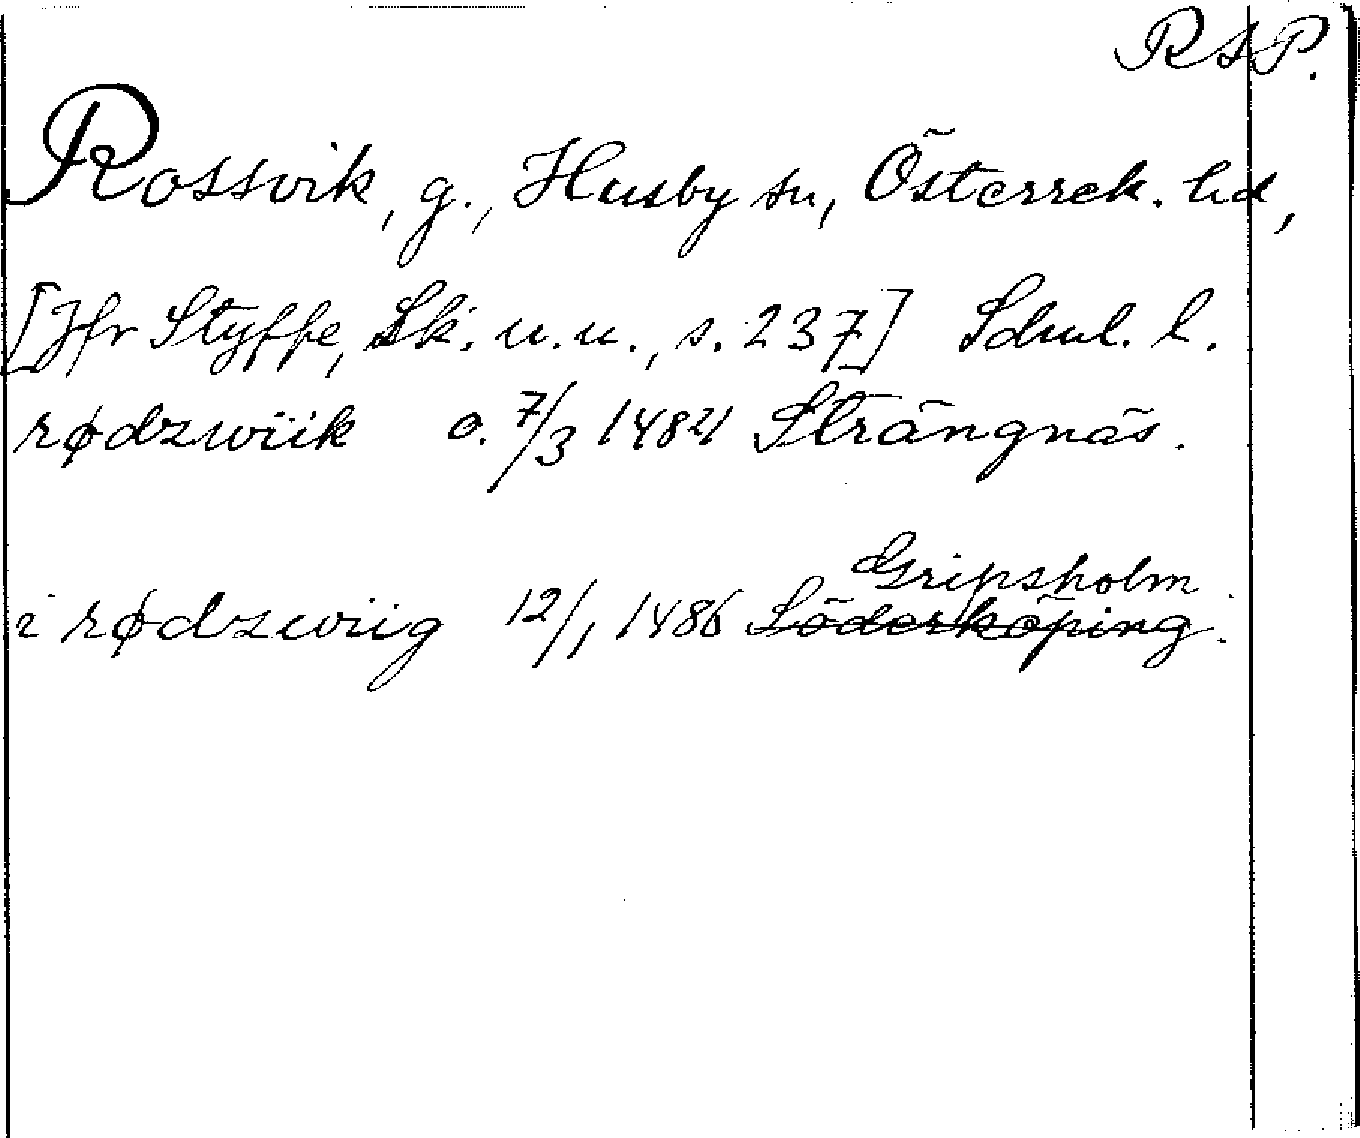 RAP.
Rossvik, g., Husby sn, Österrek. hd,
[Jfr Styffe, Sk. u. u., s. 237] Sdml. l.
rødzwiik o. 7/3 1484 Strängnäs.
Gripsholm
i rødzwiig 12/1 1486 Söderköping.